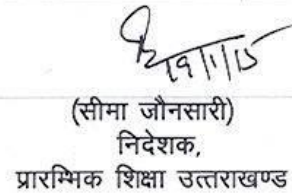 19/1/15
(सीमा जौनसारी)
निदेशक,
प्रारम्भिक शिक्षा उत्तराखण्ड